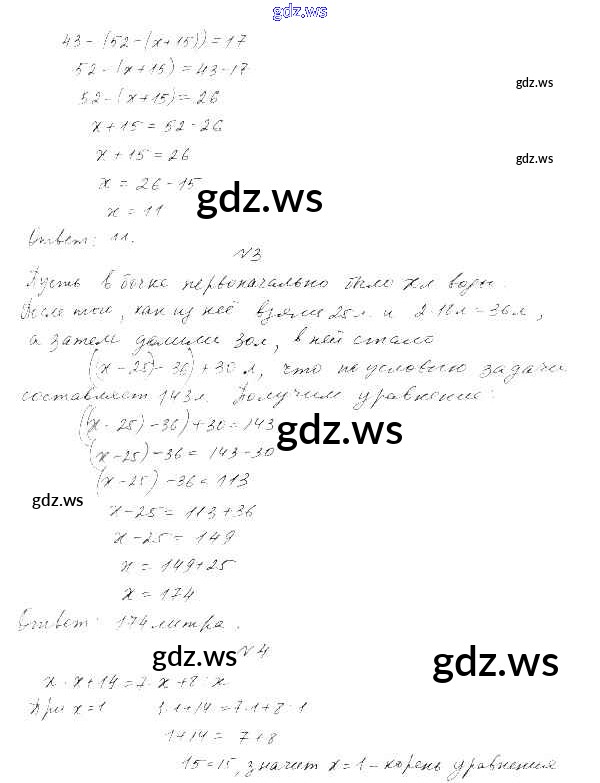 gdz.ws
43-(52-(x+15))=17
52-(x+15)=43-17
gdz.ws
52-(x+15)=26
x+15=52-26
x+15=26
gdz.ws
x=26-15
gdz.ws
x=11
Ответ: 11.
№3
Пусть в бочке первоначально было x л воды.
После того, как из неё взяли 25 л. и 2·18 л=36 л,
а затем долили 30 л, в ней стало
((x-25)-36)+30 л, что по условию задачи
составляет 143 л. Получим уравнение:
((x-25)-36)+30=143
gdz.ws
(x-25)-36=143-30
(x-25)-36=113
gdz.ws
x-25=113+36
x-25=149
x=149+25
x=174
Ответ: 174 литра.
№4
gdz.ws
gdz.ws
x·x+14=7·x+8·x
При x=1 1·1+14=7·1+8·1
1+14=7+8
15=15, значит x=1-корень уравнения